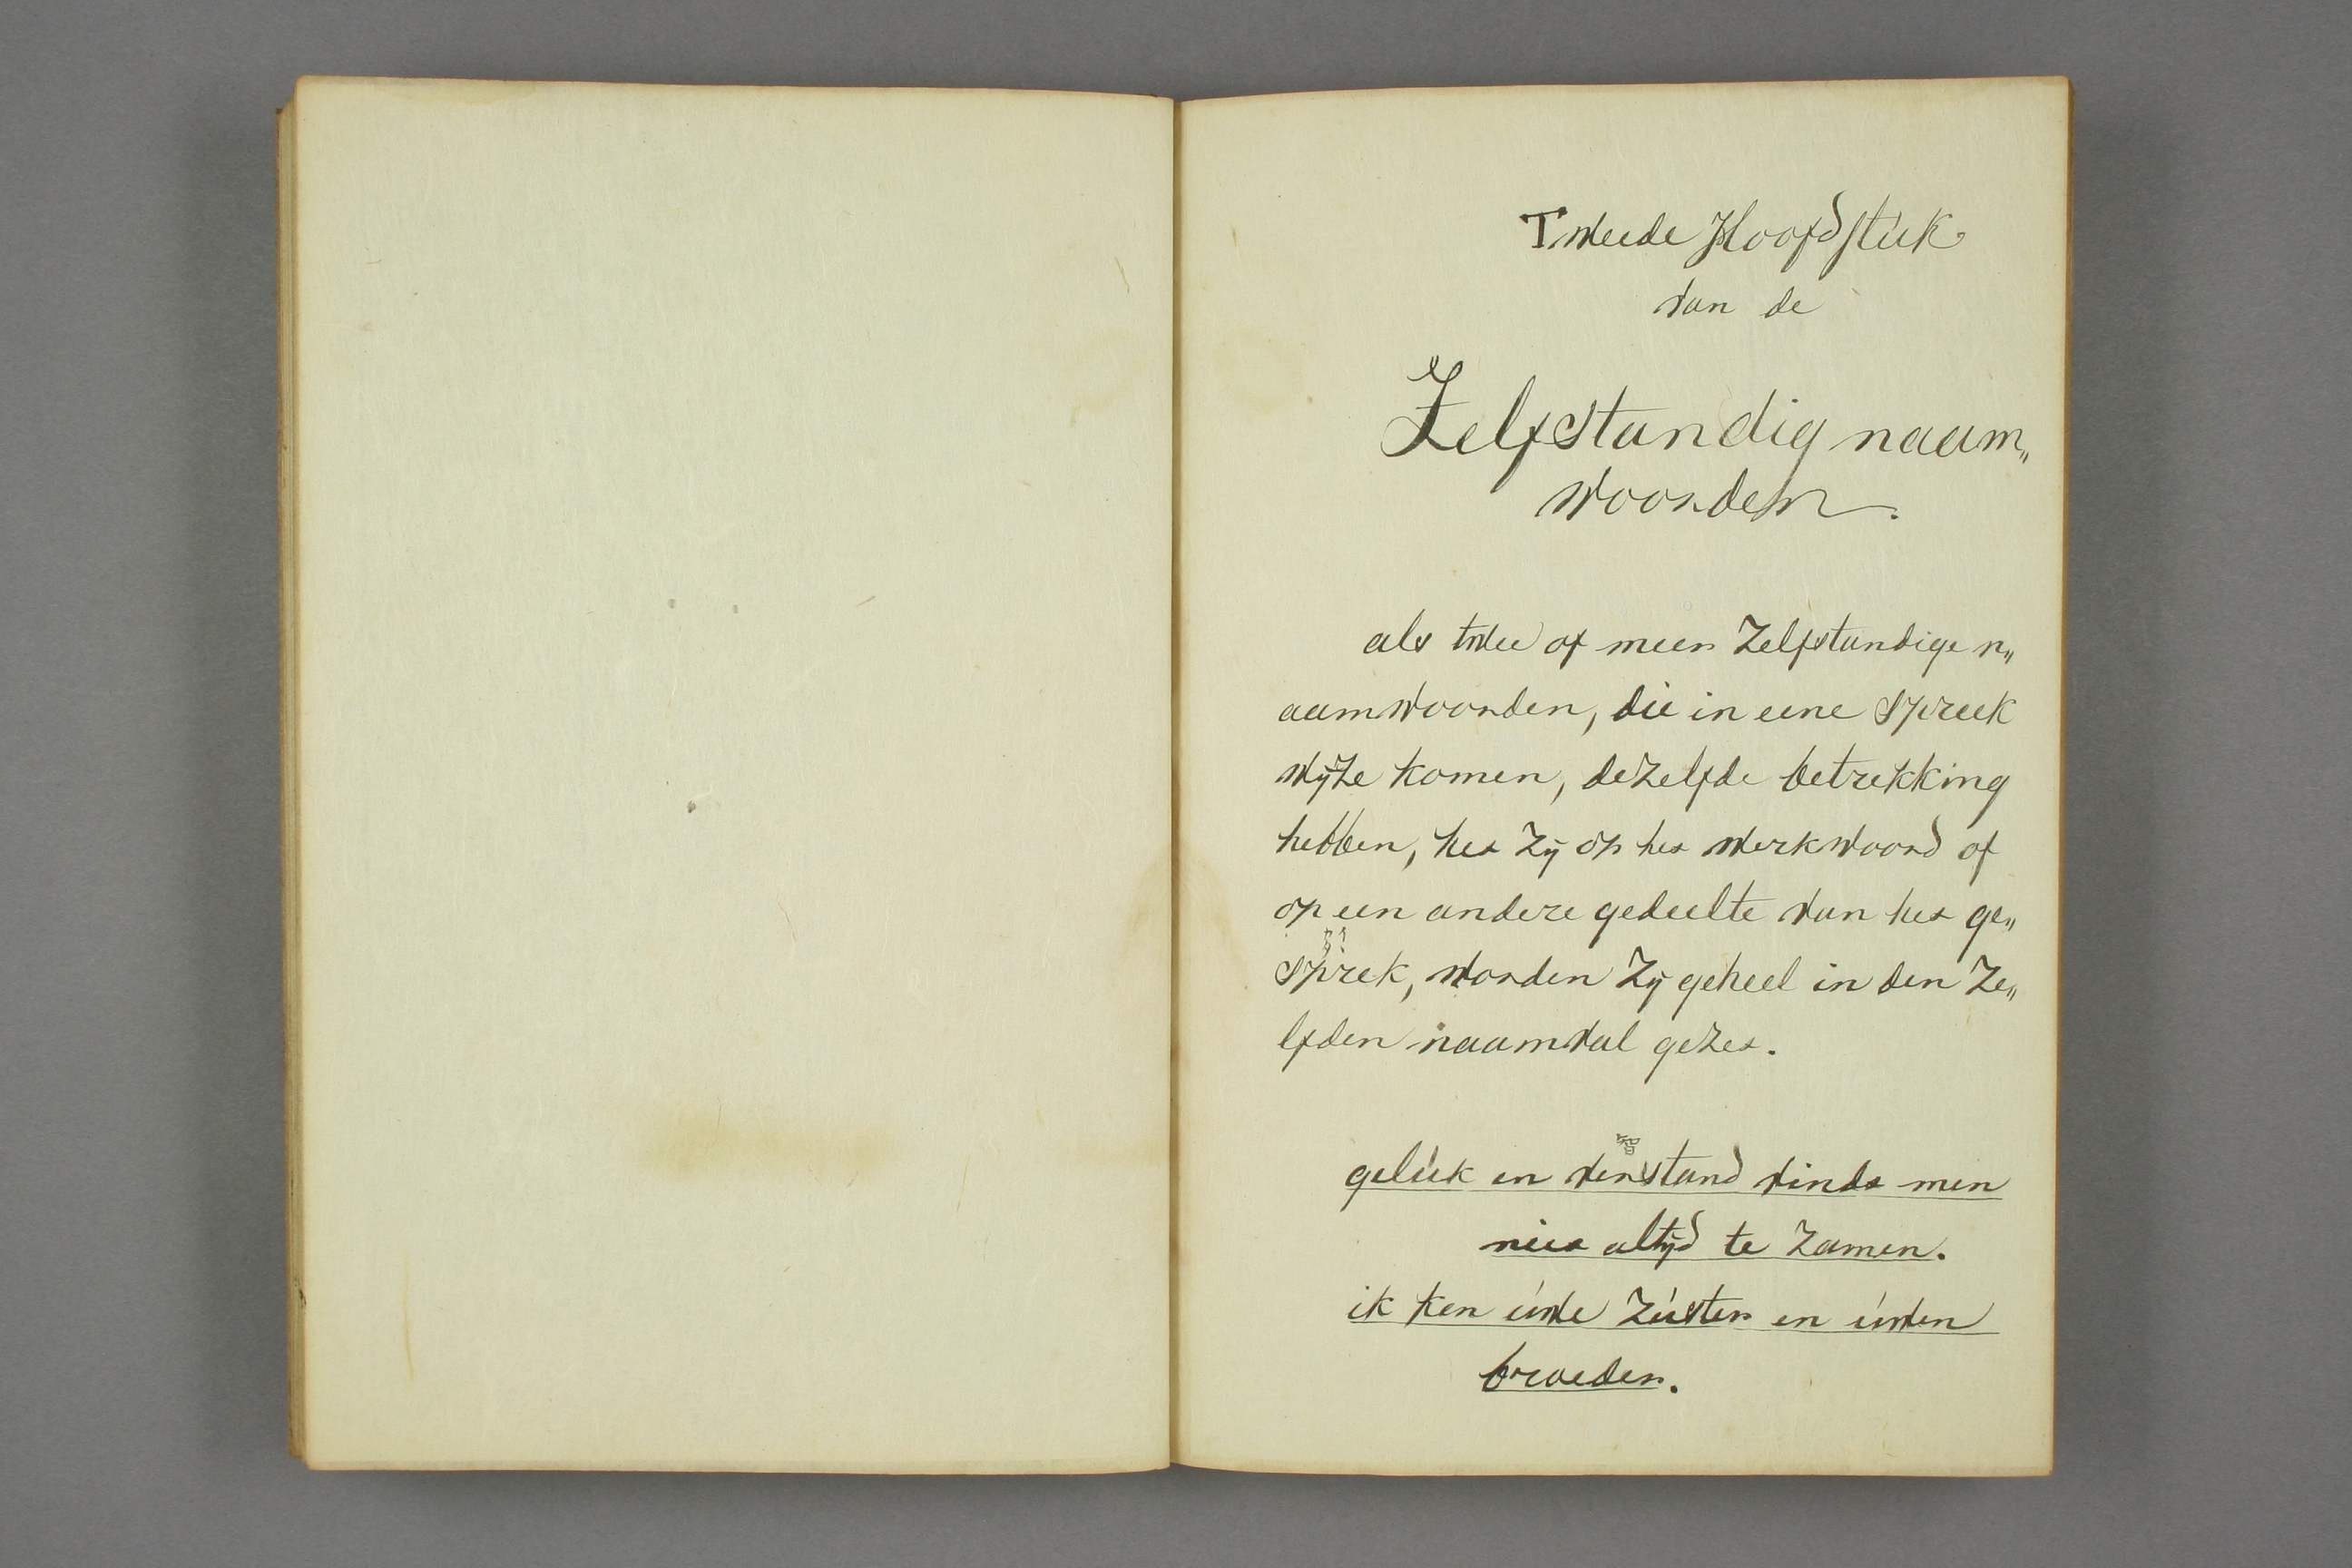 Tweede Hoofdstuk
van de
Zelfstandig naam„
woorden.
als twee of meer zelfstandige n„
aamwoorden, die in eene spreek
wijze komen, dezelfde betrekking
hebben, het zij op het werkwoord of
op een andere gedeelte van het ge„
sprek, worden zij geheel in den ze„
lfden naamval gezet.
geluk en verstand vindt men
niet altijd te zamen.
ik ken uwe zuster en uwen
broeder.